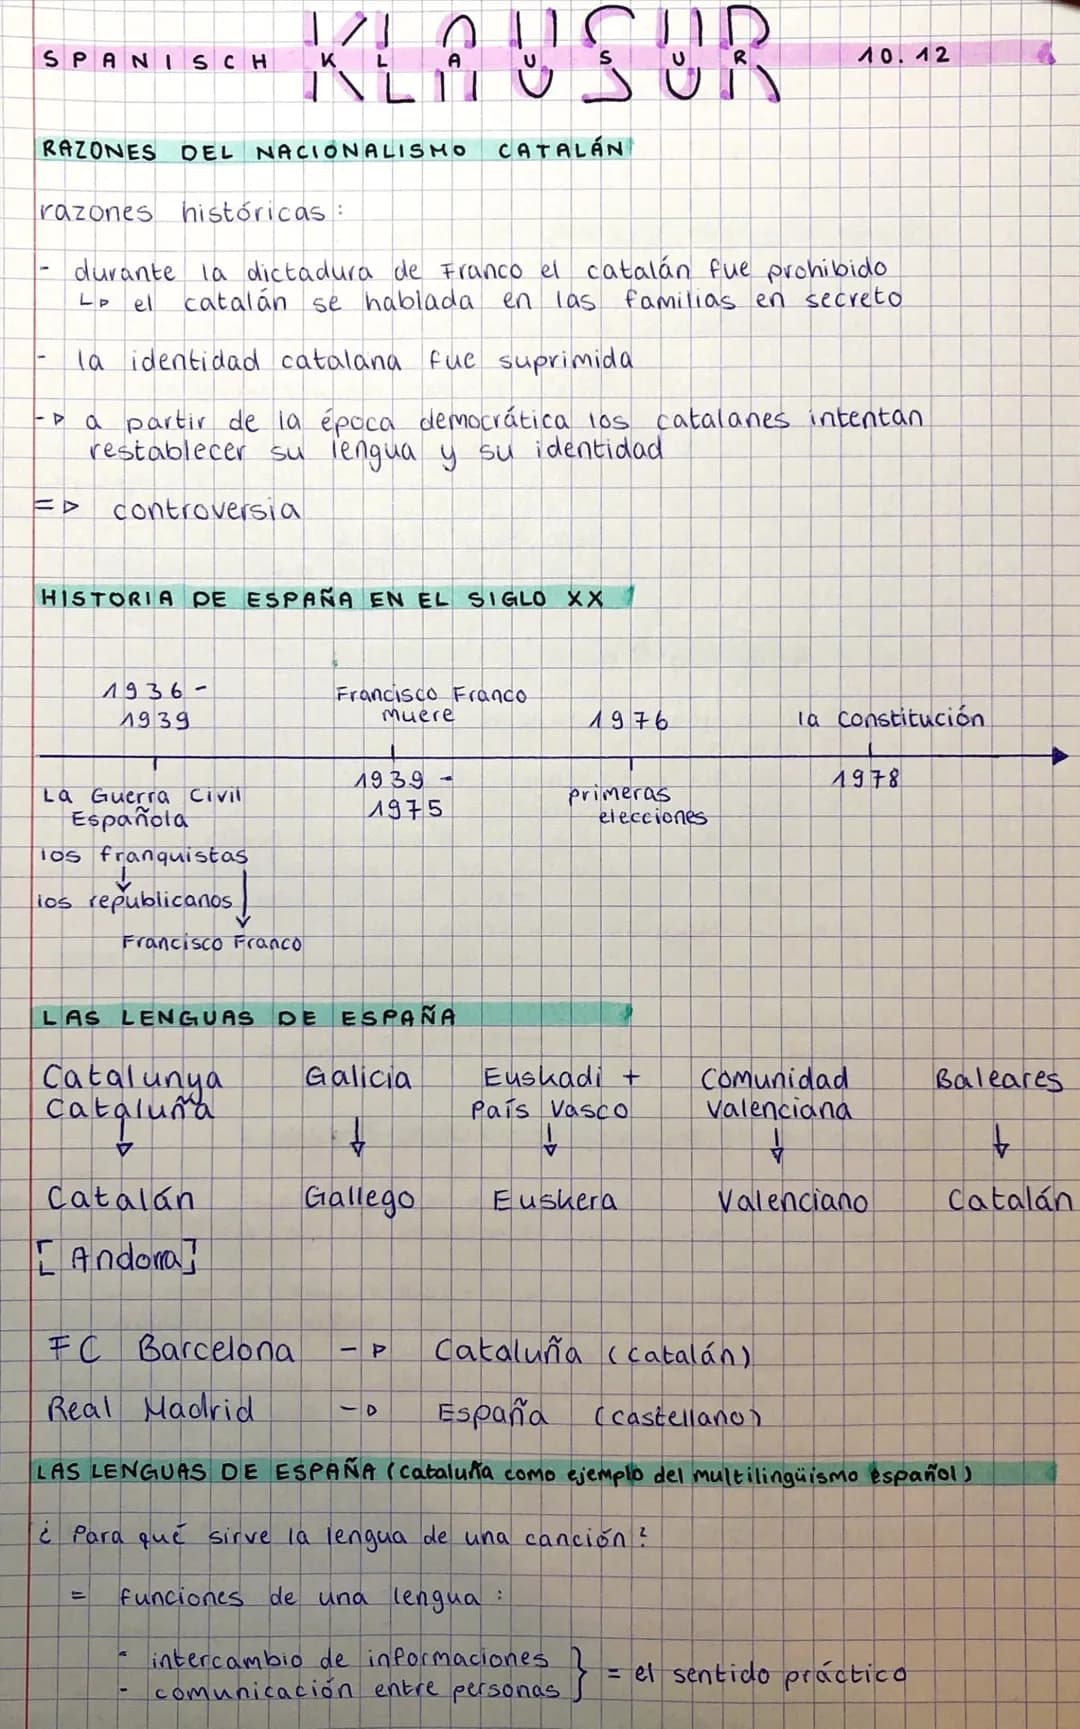 KLAUSUR
SPANISCH KLAUSUR 10.12
RAZONES DEL NACIONALISMO CATALÁN
razones históricas:
- durante la dictadura de Franco el catalán fue prohibido
↳ el catalán se hablada en las familias en secreto
- la identidad catalana fue suprimida
-▷ a partir de la época democrática los catalanes intentan
restablecer su lengua y su identidad
=▷ controversia
HISTORIA DE ESPAÑA EN EL SIGLO XX
1936-
1939
La Guerra Civil
Española
los franquistas
los republicanos
Francisco Franco
Francisco Franco
muere
1939 -
1975
1976
primeras
elecciones
la constitución
1978
LAS LENGUAS DE ESPAÑA
Catalunya Galicia Euskadi + Comunidad Baleares
Cataluña País Vasco Valenciana
↓ ↓ ↓ ↓ ↓
Catalán Gallego Euskera Valenciano Catalán
[Andorra]
FC Barcelona -▷ Cataluña (catalán)
Real Madrid -▷ España (castellano)
LAS LENGUAS DE ESPAÑA (Cataluña como ejemplo del multilingüismo español)
¿ Para qué sirve la lengua de una canción?
= funciones de una lengua:
- intercambio de informaciones
- comunicación entre personas } = el sentido práctico